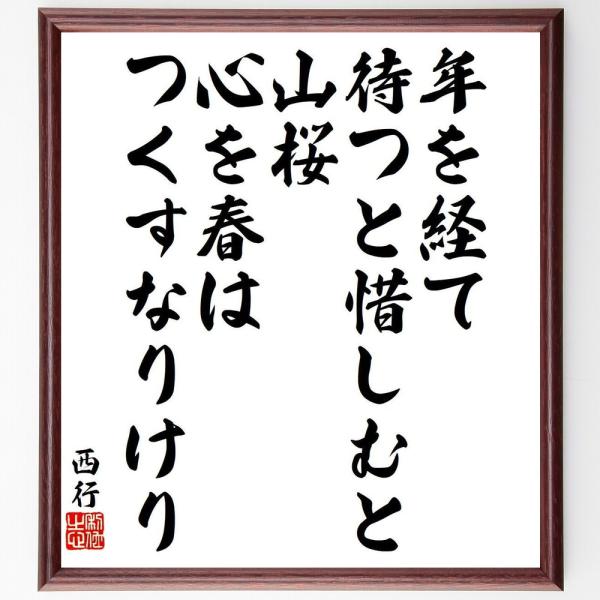 年を経て
待つと惜しむと
山桜
心を春は
つくすなりけり
西行